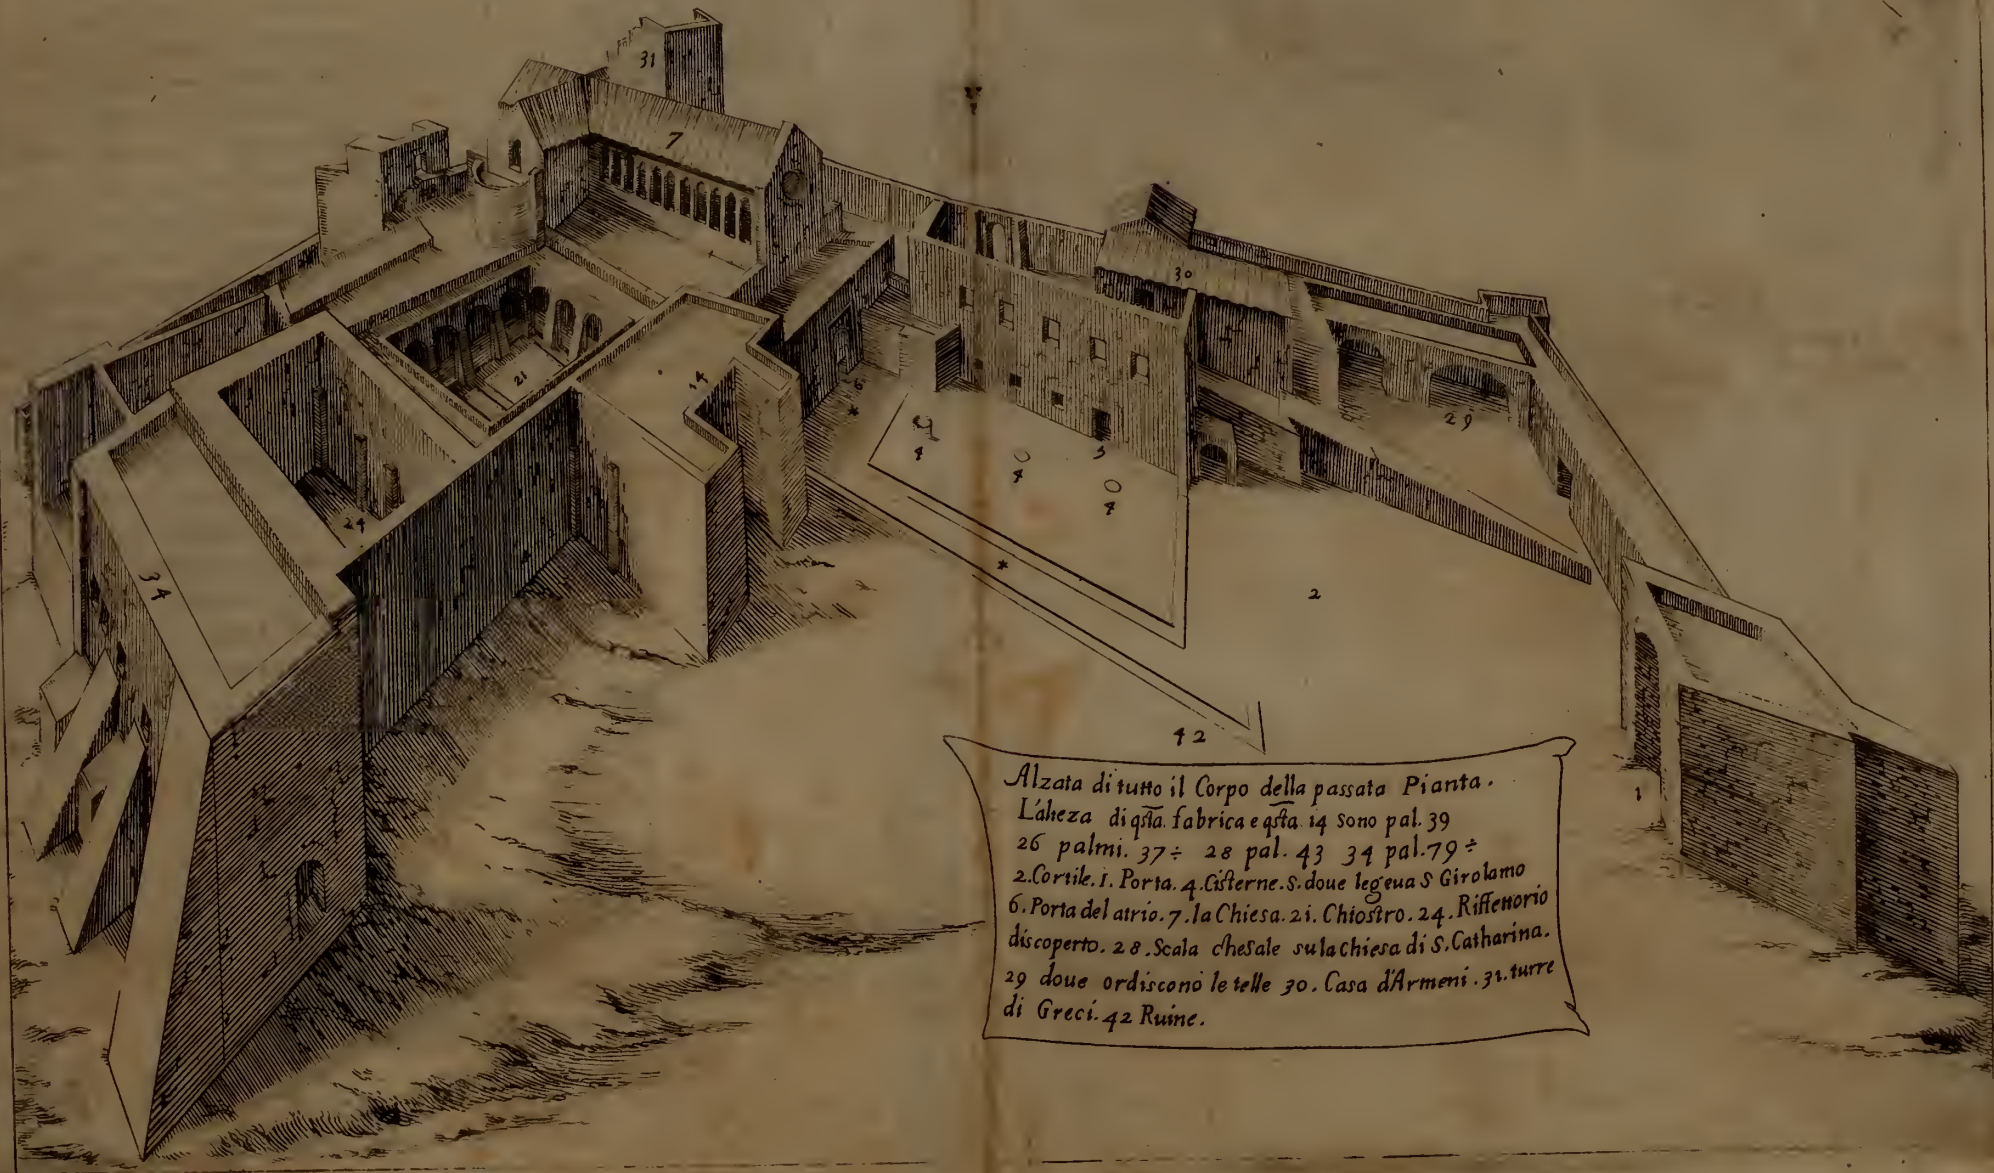 31
7
30
21
14
29
6
*
4
4
5
4
24
34
*
2
42
1
Alzata di tutto il Corpo della passata Pianta.
L'alteza di qsta. fabrica e qsta. 14 sono pal. 39
26 palmi. 37÷ 28 pal. 43 34 pal. 79÷
2. Cortile. 1. Porta. 4. Cisterne. 5. doue legeua S Girolamo
6. Porta del atrio. 7. la Chiesa. 21. Chiostro. 24. Riffettorio
discoperto. 28. Scala che sale su la chiesa di S. Catharina.
29 doue ordiscono le telle 30. Casa d'Armeni. 31. turre
di Greci. 42 Ruine.